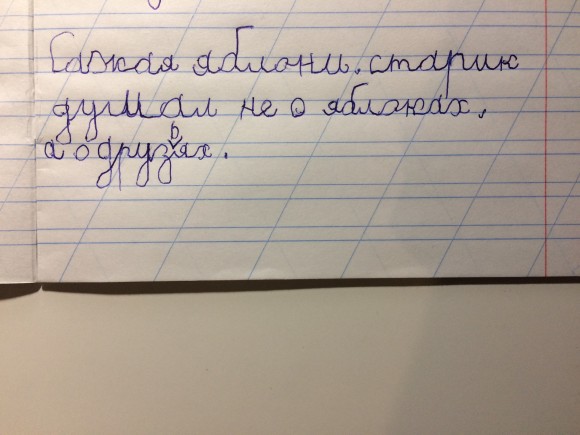 Сажая яблони, старик
думал не о яблоках,
а о друзьях.